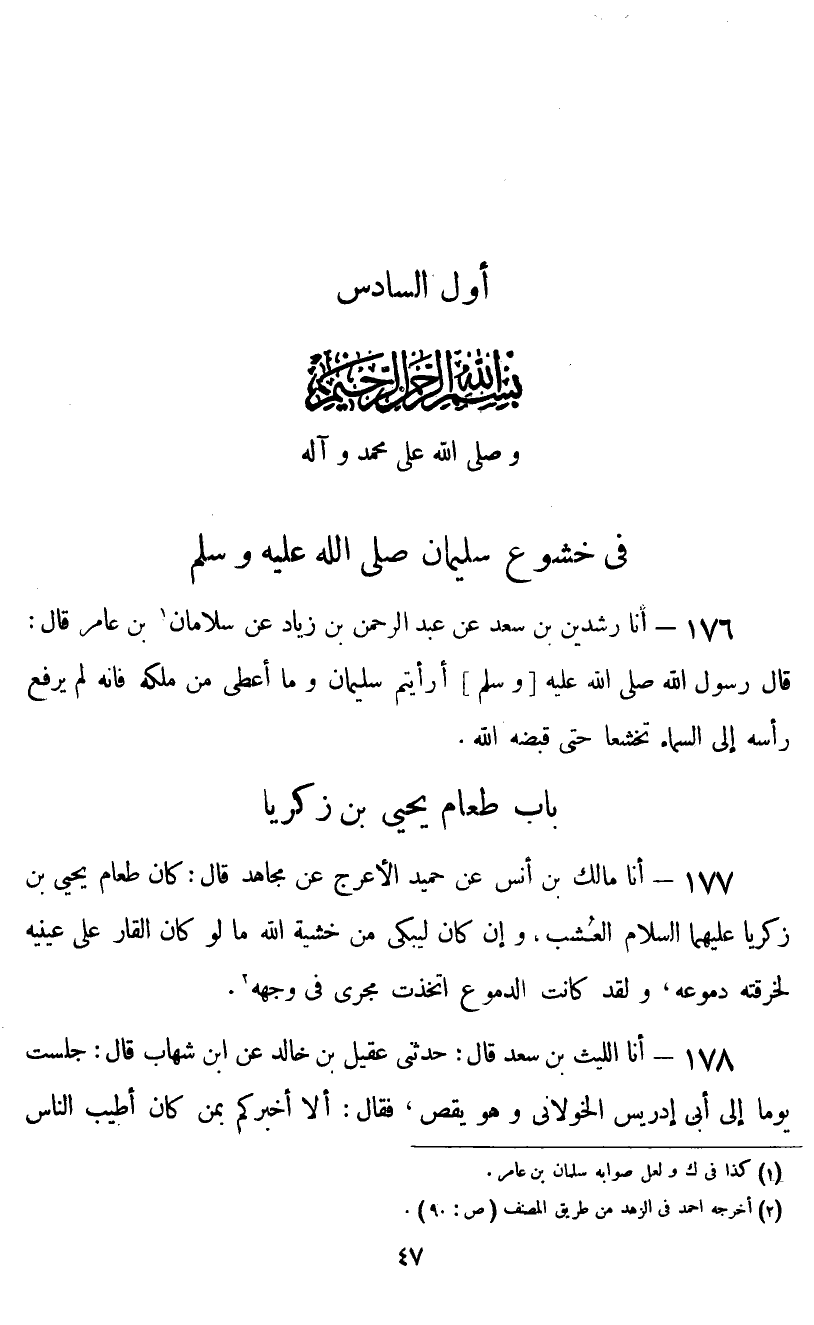 أول السادس
بسم الله الرحمن الرحيم
و صلى الله على محمد و آله
فى خشوع سليمان صلى الله عليه و سلم
١٧٦ – أنا رشدين بن سعد عن عبد الرحمن بن زياد عن سلامان١ بن عامر قال:
قال رسول الله صلى الله عليه [و سلم] أرأيتم سليمان و ما أعطى من ملكه فانه لم يرفع
رأسه إلى السماء تخشعا حتى قبضه الله .
باب طعام يحيى بن زكريا
١٧٧ – أنا مالك بن أنس عن حميد الأعرج عن مجاهد قال: كان طعام يحيى بن
زكريا عليهما السلام العُشب، و إن كان ليبكى من خشية الله ما لو كان القار على عينيه
لخرقته دموعه، و لقد كانت الدموع اتخذت مجرى فى وجهه٢.
١٧٨ – أنا الليث بن سعد قال: حدثنى عقيل بن خالد عن ابن شهاب قال: جلست
يوما إلى أبى إدريس الخولانى و هو يقص، فقال: ألا أخبركم بمن كان أطيب الناس
(١) كذا فى ك و لعل صوابه سلمان بن عامر .
(٢) أخرجه احمد فى الزهد من طريق المصنف (ص: ٩٠) .
٤٧